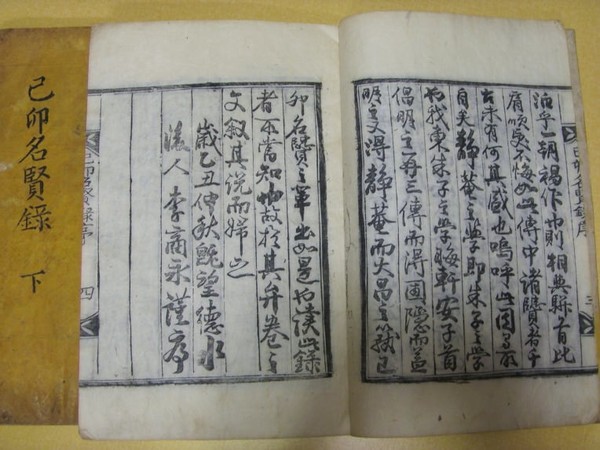 己卯名賢錄 下
一朝禍作 則相與騈首比
肩 受不悔如此傳中諸賢者乎
古未有何其盛也嗚呼此固
自矣靜菴之學即朱子之學
也我東朱子之學晦軒安子首
倡明之再三傳而得圃隱而益
明之又得靜菴而大昌之 已
己卯名賢錄序 三
卯名賢之輩出如是也 此錄
者不當知也故於其弁卷之
文叙其說而歸之
歲乙丑仲秋旣望德水
後人李商永謹序
己卯名賢錄序 四